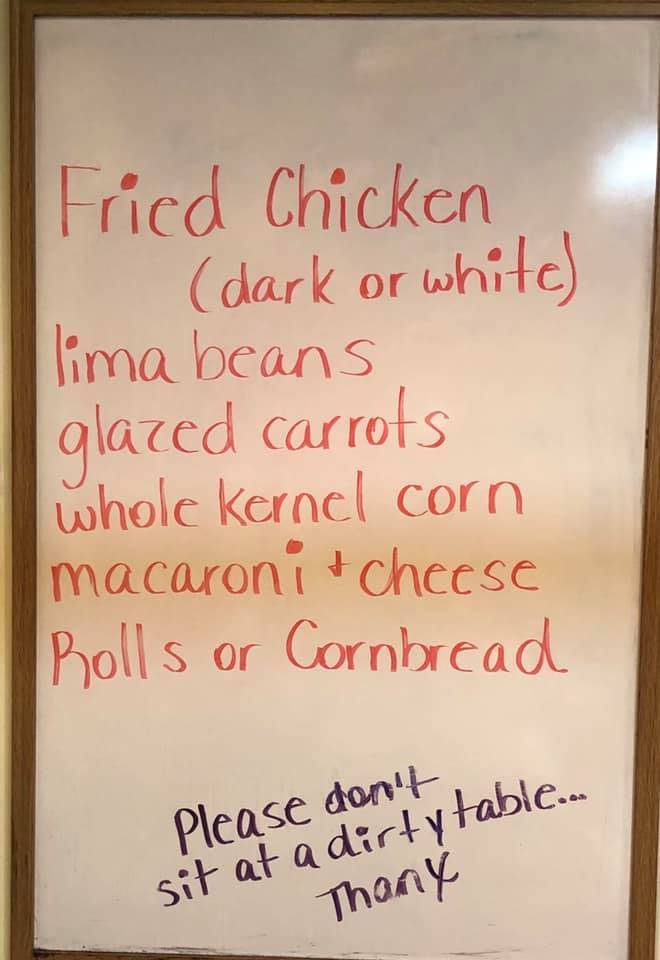 Fried Chicken
(dark or white)
lima beans
glazed carrots
whole kernel corn
macaroni + cheese
Rolls or Cornbread
Please don't
sit at a dirty table...
Thanx